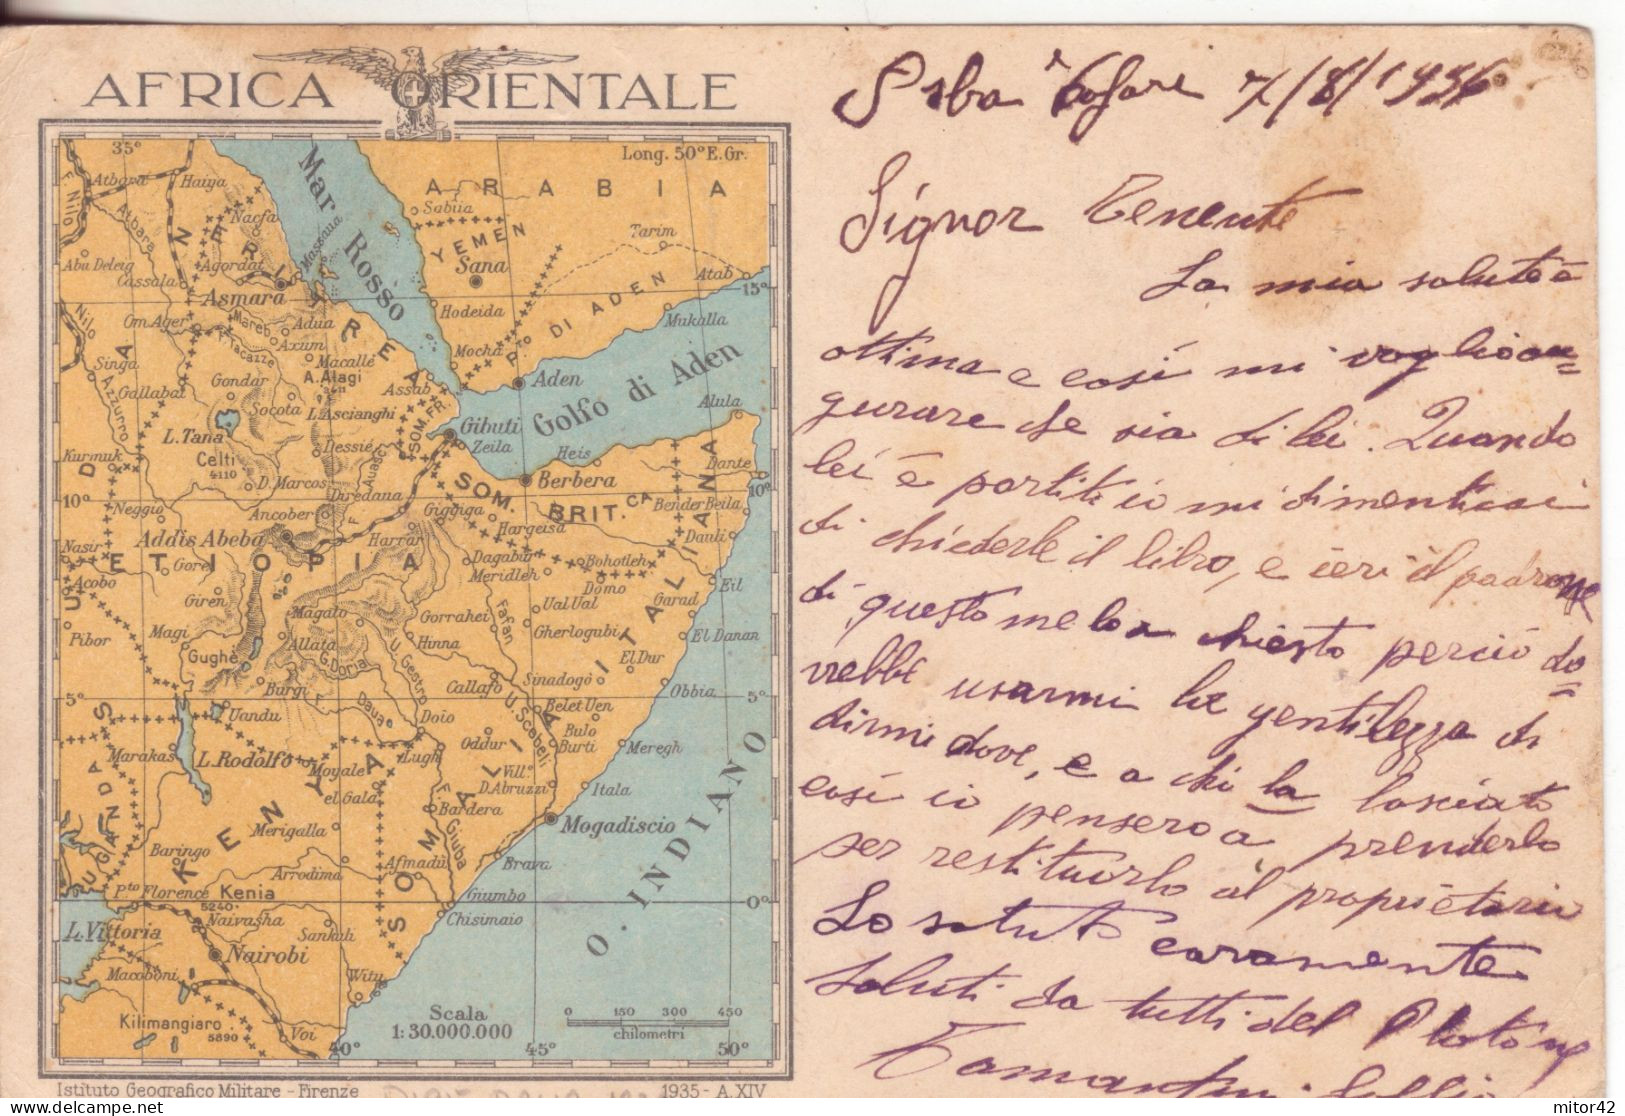 AFRICA ORIENTALE
35° Long. 50° E. Gr.
Mar Rosso
ARABIA
F. Nilo
Atbara
Haiya
Atbara
Nacfa
Massaua
Sabüa
YEMEN
Tarim
Sana
Abu Deleig
Cassala
Agordat
ERITREA
Asmara
Atab
15°
Hodeida
Pto DI ADEN
Mukalla
Nilo
Om Ager
Mareb
Adua
F. Tacazze
Axum
Macallè
A. Alagi
Mocha
Singa
Gallabat
Gondar
Socota
L. Ascianghi
Assab
Aden
Golfo di Aden
Alula
Azzurro
SOM. FR.
Gibuti
Zeila
L. Tana
Dessiè
Celti
4110
Kurmuk
D. Marcos
Auasc
Heis
Dante
Berbera
10°
Diredaua
SOM. BRIT.CA
Neggio
Ancober
Giggiga
Hargeisa
Bender Beila
Addis Abeba
Harrar
Dauli
Nasir
ETIOPIA
Dagabur
Bohotleh
Acobo
Gore
Meridleh
Domo
Eil
Giren
Magalo
Gorrahei
Fafan
Ual Ual
Garad
Pibor
Magi
Allata
Hinna
Gherlogubi
El Danan
Gughè
G. Doria
U. Gestro
El Dur
Burgi
Callafo
Sinadogò
Obbia
5°
Uandu
Daua
Dolo
U. Scebeli
Belet Uen
Bulo Burti
Marakas
L. Rodolfo
Lugh
Oddur
Meregh
Moyale
Vill.o D. Abruzzi
Itala
el Gala
Bardera
SOMALIA ITALIANA
UGANDA
KENYA
Merigalla
Mogadiscio
Baringo
Afmadù
F. Giuba
Brava
Arrodima
Pto Florence
Kenia
5240
Giumbo
0°
Chisimaio
Naivasha
Sankuli
L. Vittoria
Nairobi
O. INDIANO
Macoboni
Witu
Kilimangiaro
5890
Voi
Scala
1:30.000.000
0 150 300 450
chilometri
40° 45° 50°
Istituto Geografico Militare - Firenze 1935 - A. XIV
7/8/1936
Signor Tenente
La mia salute è
ottima e così mi voglio au=
gurare che sia di lei. Quando
lei è partito io mi dimenticai
di chiederle il libro, e ieri il padrone
di questo me lo a chiesto perciò do=
vrebbe usarmi la gentilezza di
dirmi dove, e a chi la lasciato
così io penserò a prenderlo
per restituirlo al proprietario
Lo saluto caramente
Saluti da tutti del Plotone
mitor42